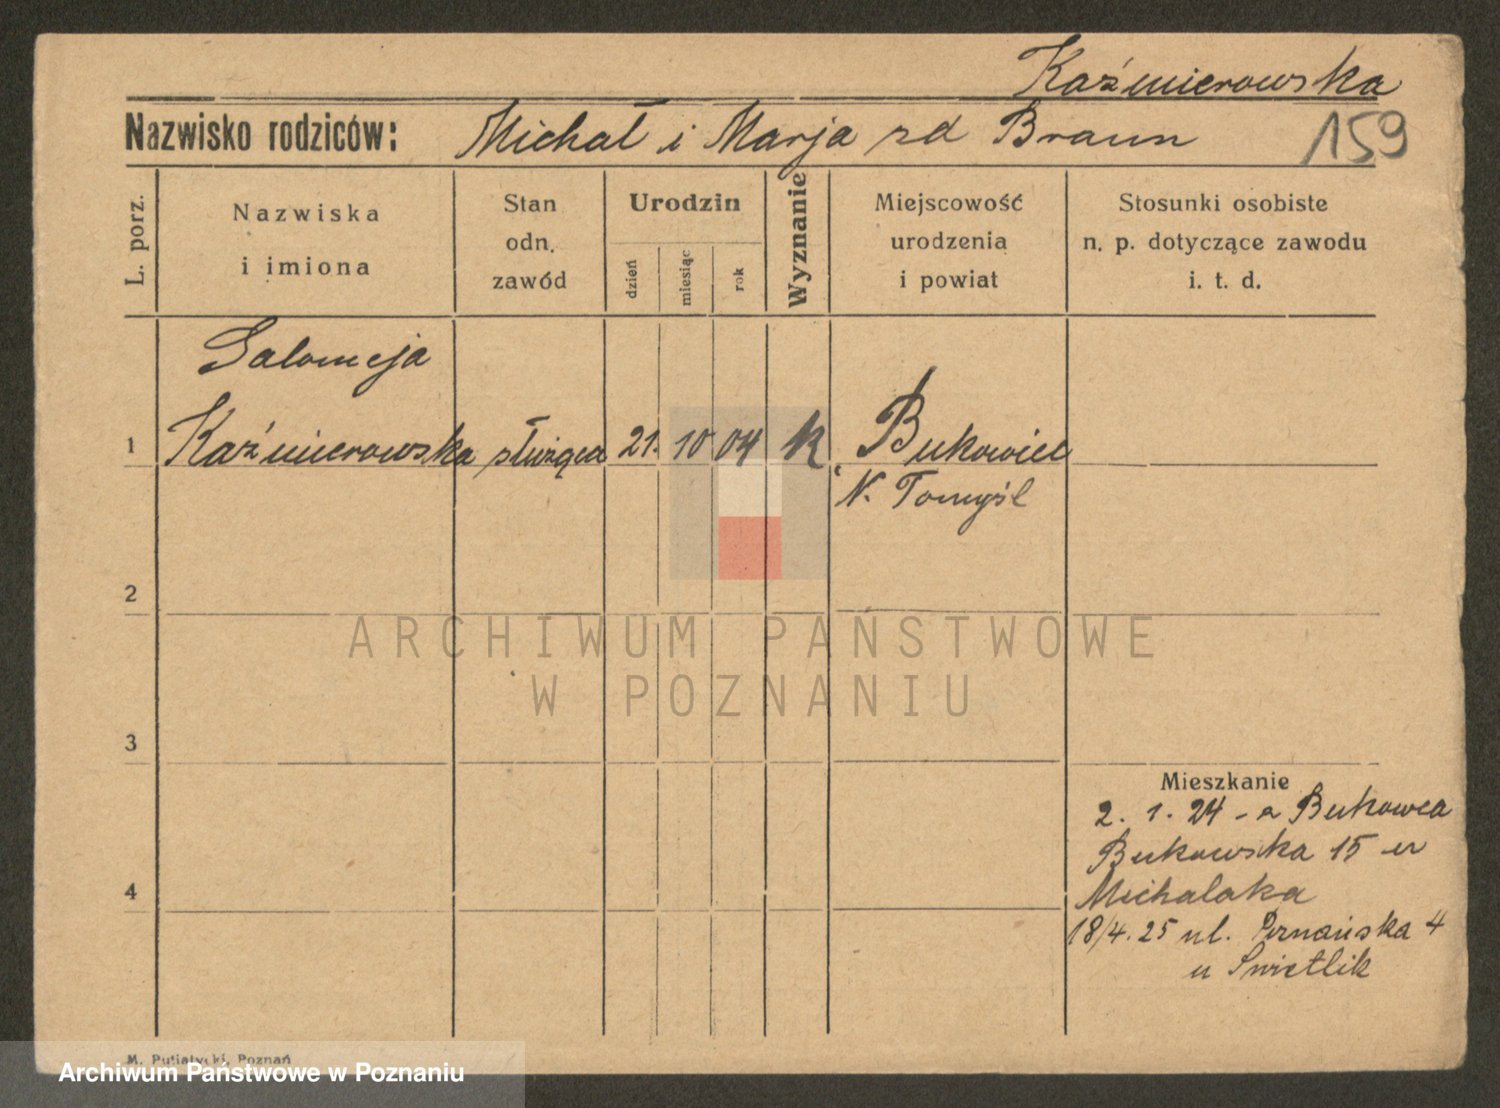 Kaźmierowska
Nazwisko rodziców: Michał i Marja zd Braun 159
L. porz.
Nazwiska
i imiona
Stan
odn.
zawód
Urodzin
dzień
miesiąc
rok
Wyznanie
Miejscowość
urodzenia
i powiat
Stosunki osobiste
n. p. dotyczące zawodu
i. t. d.
Salomeja
1 Kaźmierowska służąca 21. 10 04 k Bukowiec
N. Tomyśl
2
ARCHIWUM PAŃSTWOWE
W POZNANIU
3
Mieszkanie
2. 1. 24 - z Bukowca
Bukowska 15 u
Michalaka
4
18/4. 25 ul. Poznańska 4
u Swietlik
M. Putiatycki, Poznań
Archiwum Państwowe w Poznaniu